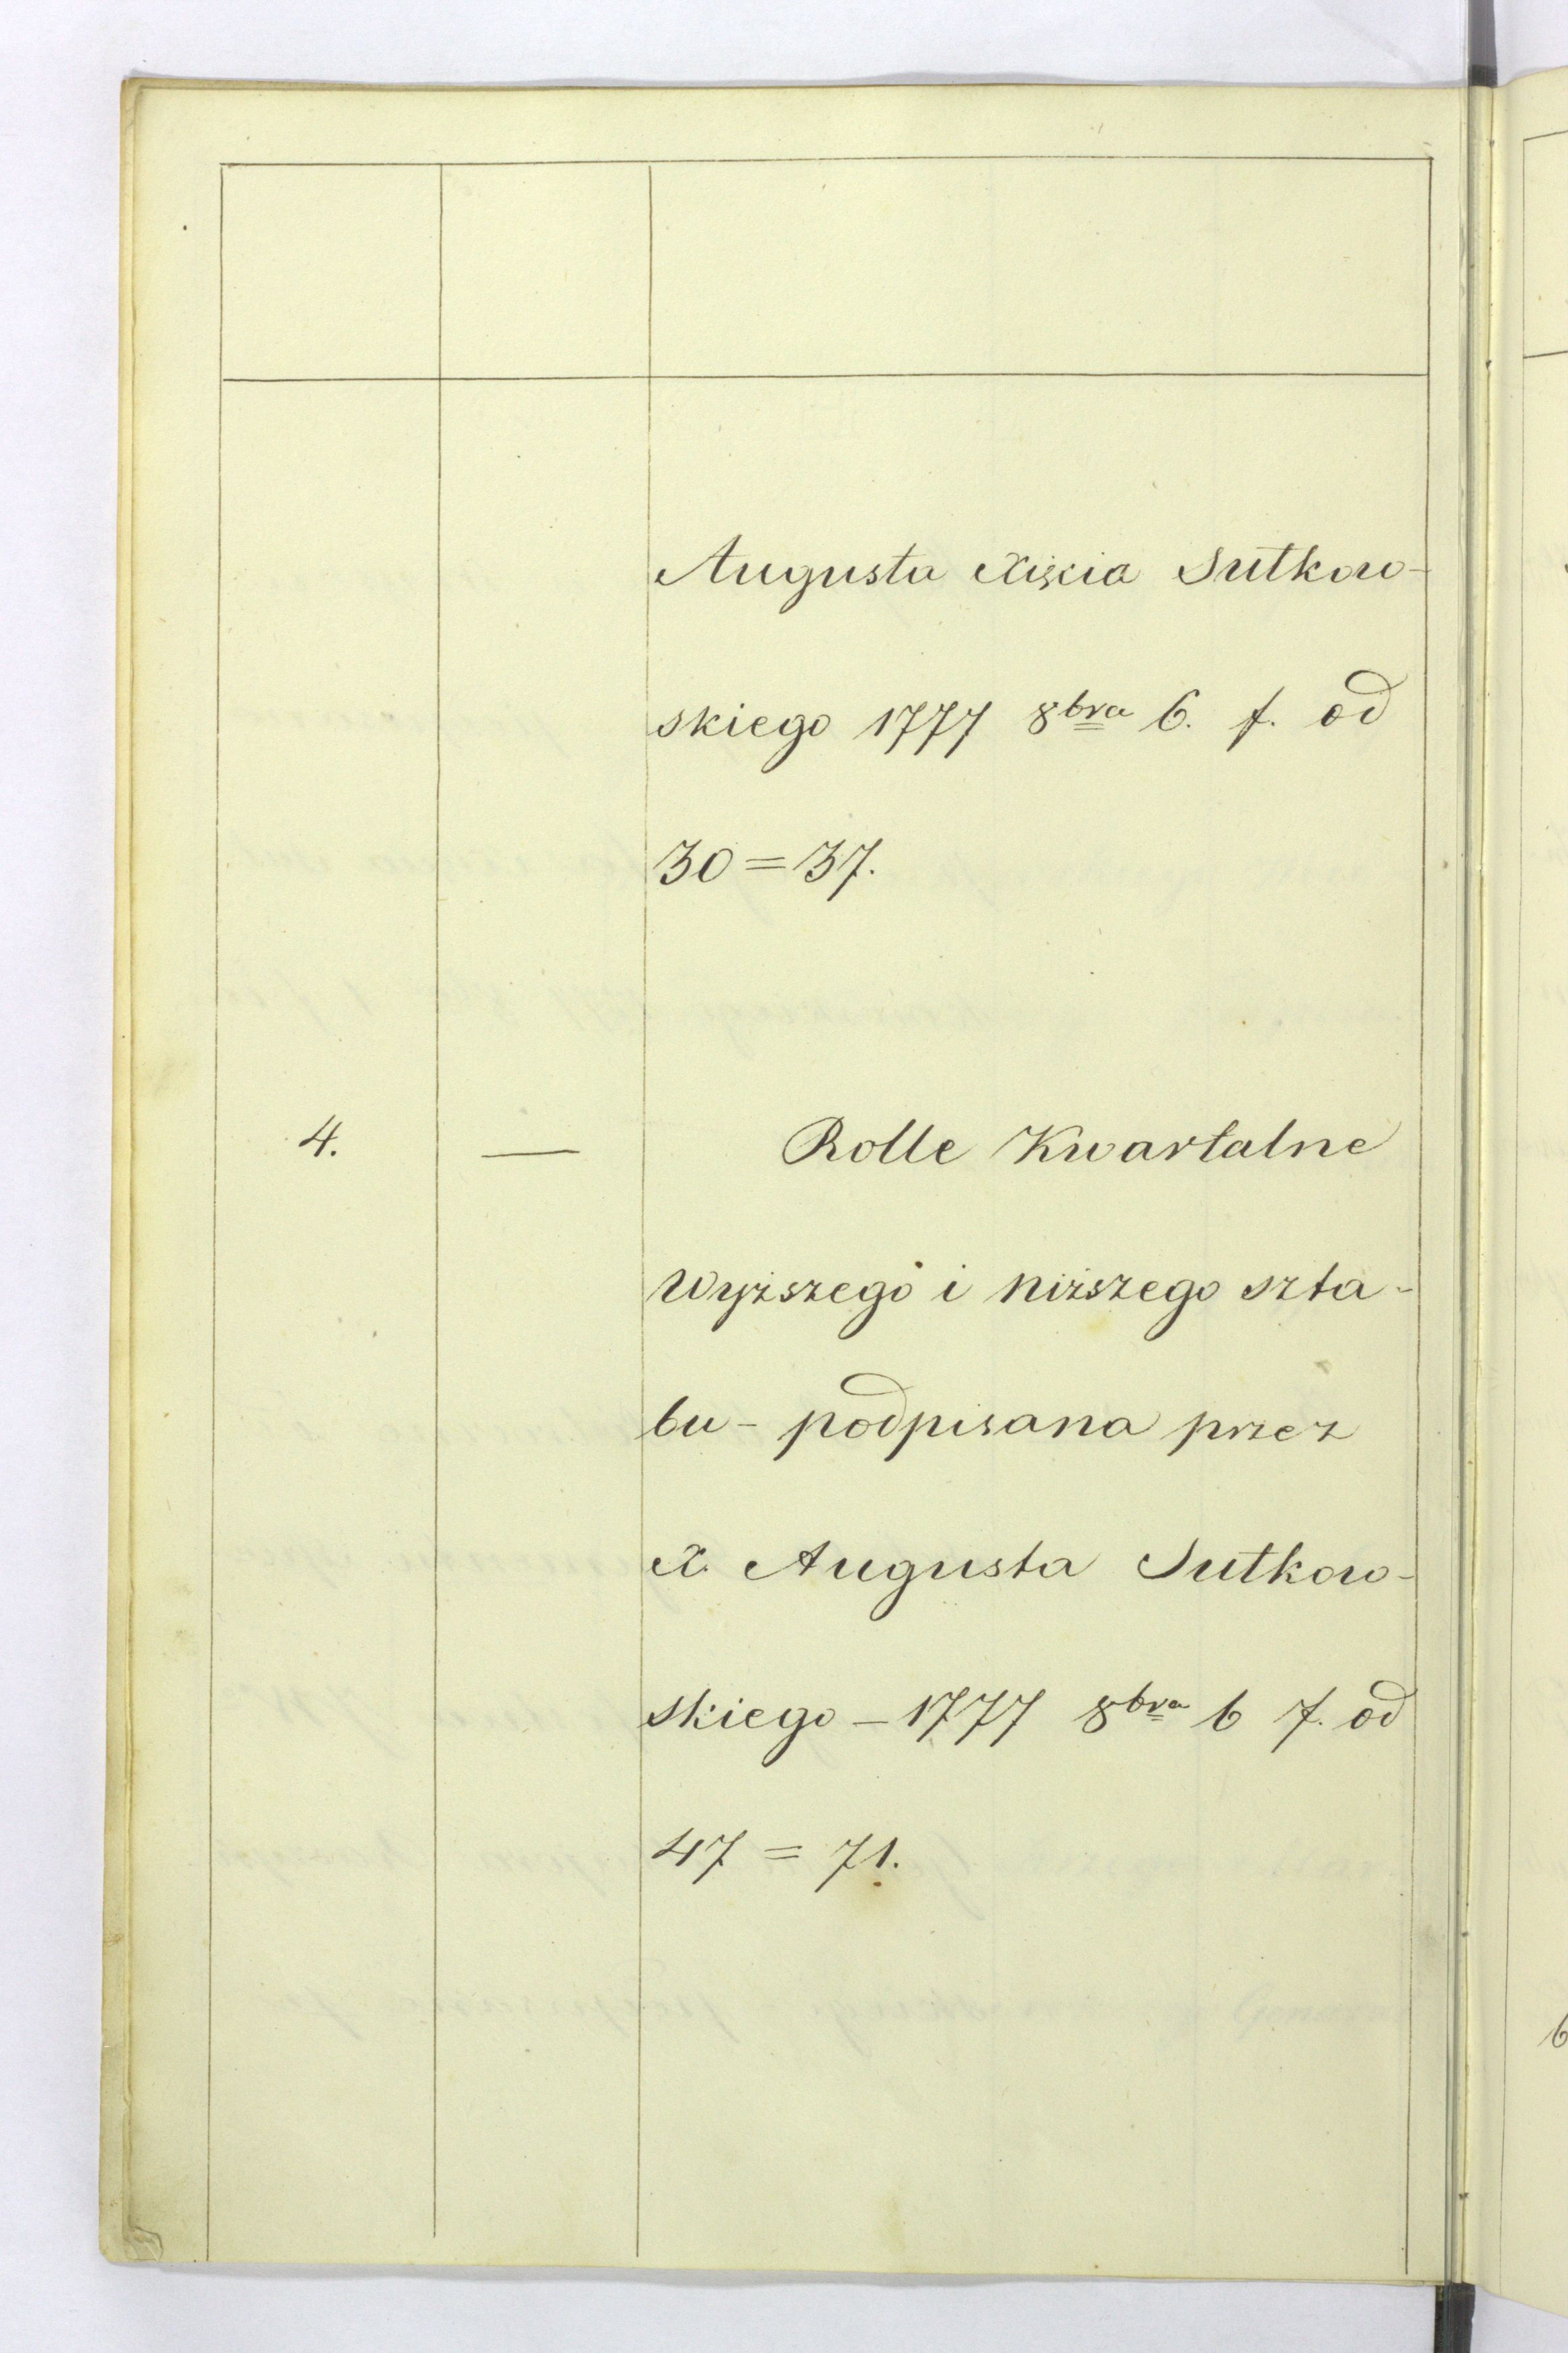 Augusta Xięcia Sułkow-
skiego 1777 8bra 6. f. od
30 = 37.
4. — Rolle Kwartalne
Wyższego i niższego szta-
bu - podpisana przez
X. Augusta Sułkow-
skiego - 1777 8bra 6 f. od
47 = 71.